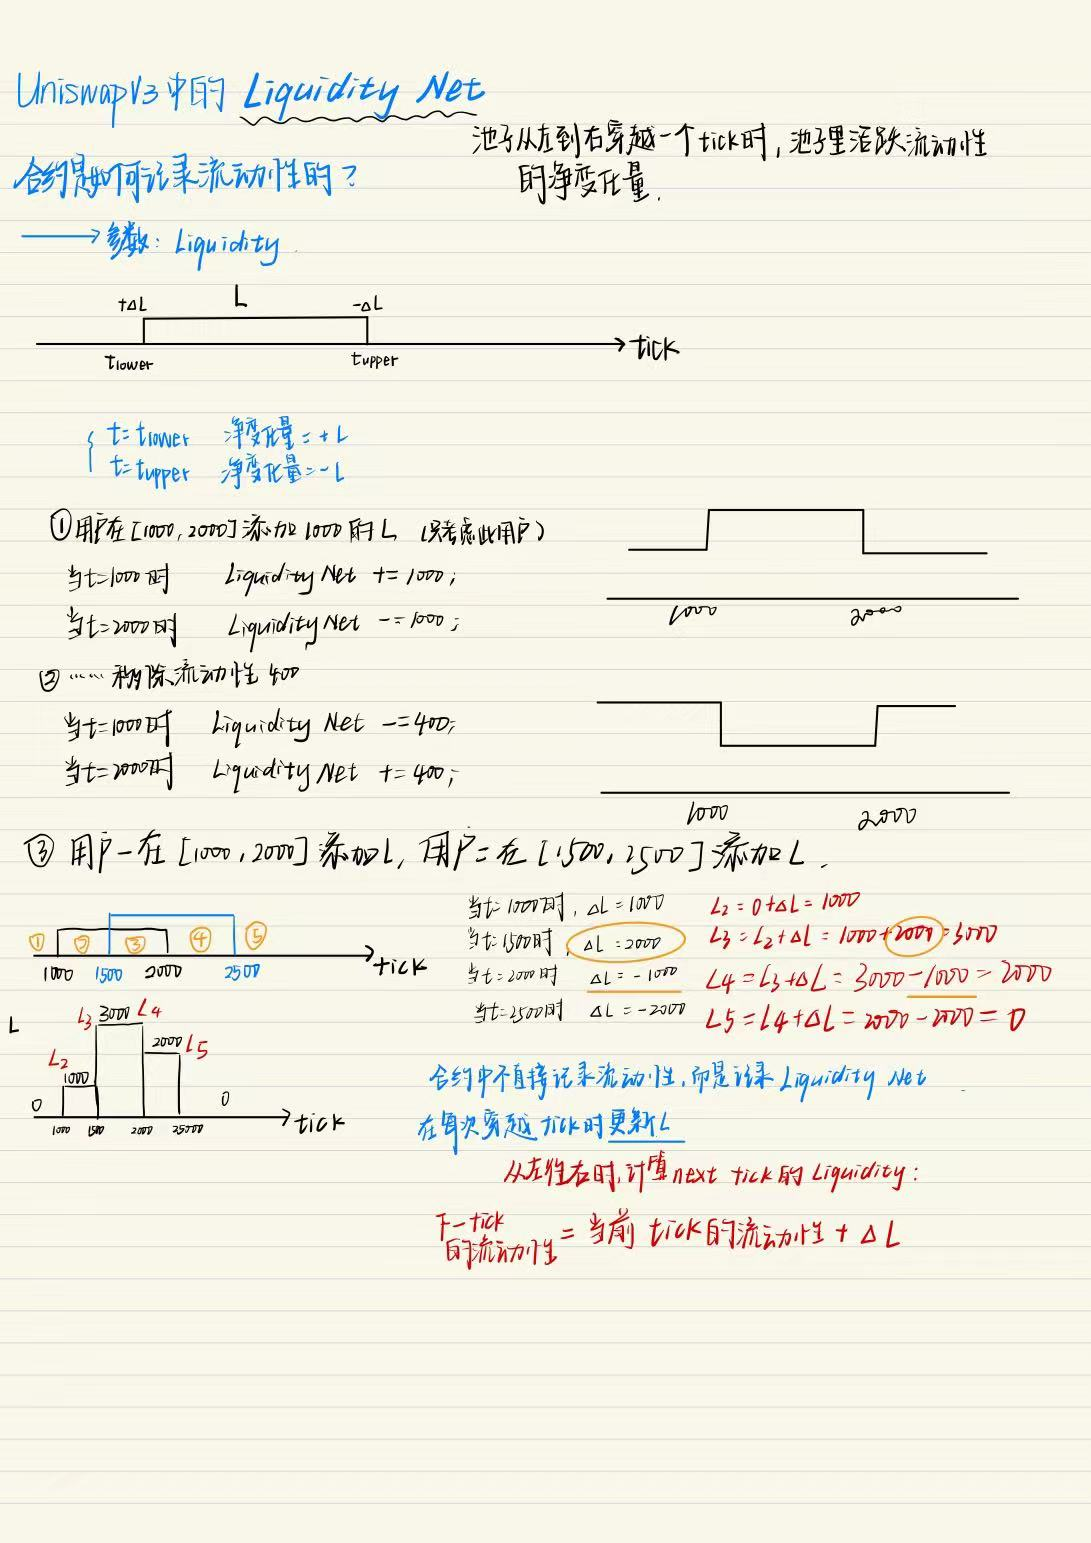 Uniswap V3中的 Liquidity Net
池子从左到右穿越一个tick时，池子里活跃流动性
的净变化量.
合约是如何记录流动性的？
→ 参数: Liquidity.
+ΔL L -ΔL
tlower tupper tick
t=tlower 净变化量=+L
t=tupper 净变化量=-L
① 用户在[1000,2000]添加1000的L (只考虑此用户)
当t=1000时 Liquidity Net += 1000;
当t=2000时 Liquidity Net -= 1000;
1000 2000
② …… 移除流动性 400
当t=1000时 Liquidity Net -= 400;
当t=2000时 Liquidity Net += 400;
1000 2000
③ 用户一在[1000,2000]添加L, 用户二在[1500,2500]添加L.
① ② ③ ④ ⑤
1000 1500 2000 2500 tick
当t=1000时, ΔL=1000 L2=0+ΔL=1000
当t=1500时, ΔL=2000 L3=L2+ΔL=1000+2000=3000
当t=2000时 ΔL=-1000 L4=L3+ΔL=3000-1000=2000
当t=2500时 ΔL=-2000 L5=L4+ΔL=2000-2000=0
L L3 3000 L4
L2 2000 L5
1000
0 0
1000 1500 2000 25000 tick
合约中不直接记录流动性,而是记录 Liquidity Net.
在每次穿越 tick时更新L
从左往右时,计算next tick的Liquidity:
下一tick
的流动性 = 当前 tick的流动性 + ΔL